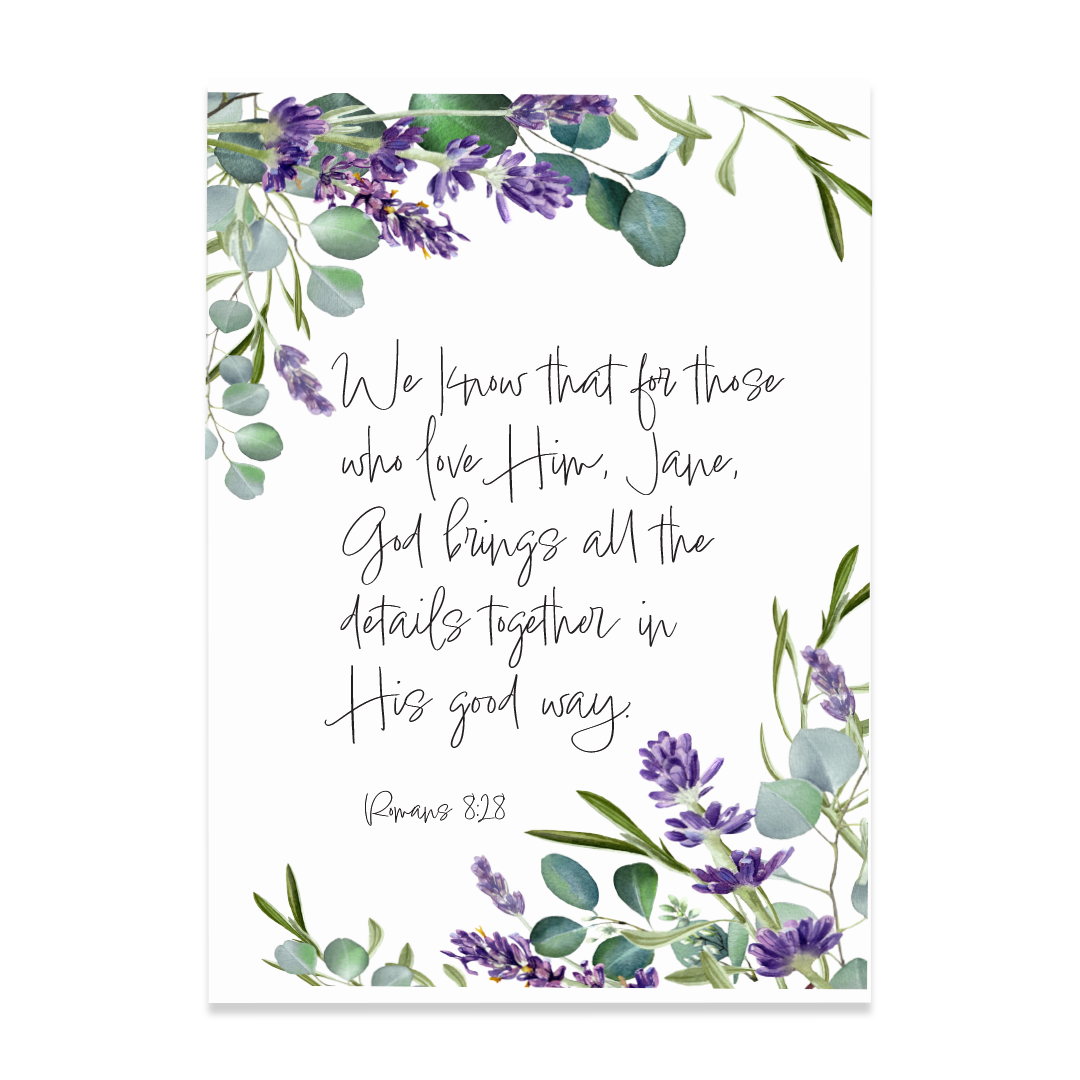 We know that for those
who love Him, Jane,
God brings all the
details together in
His good way.
Romans 8:28